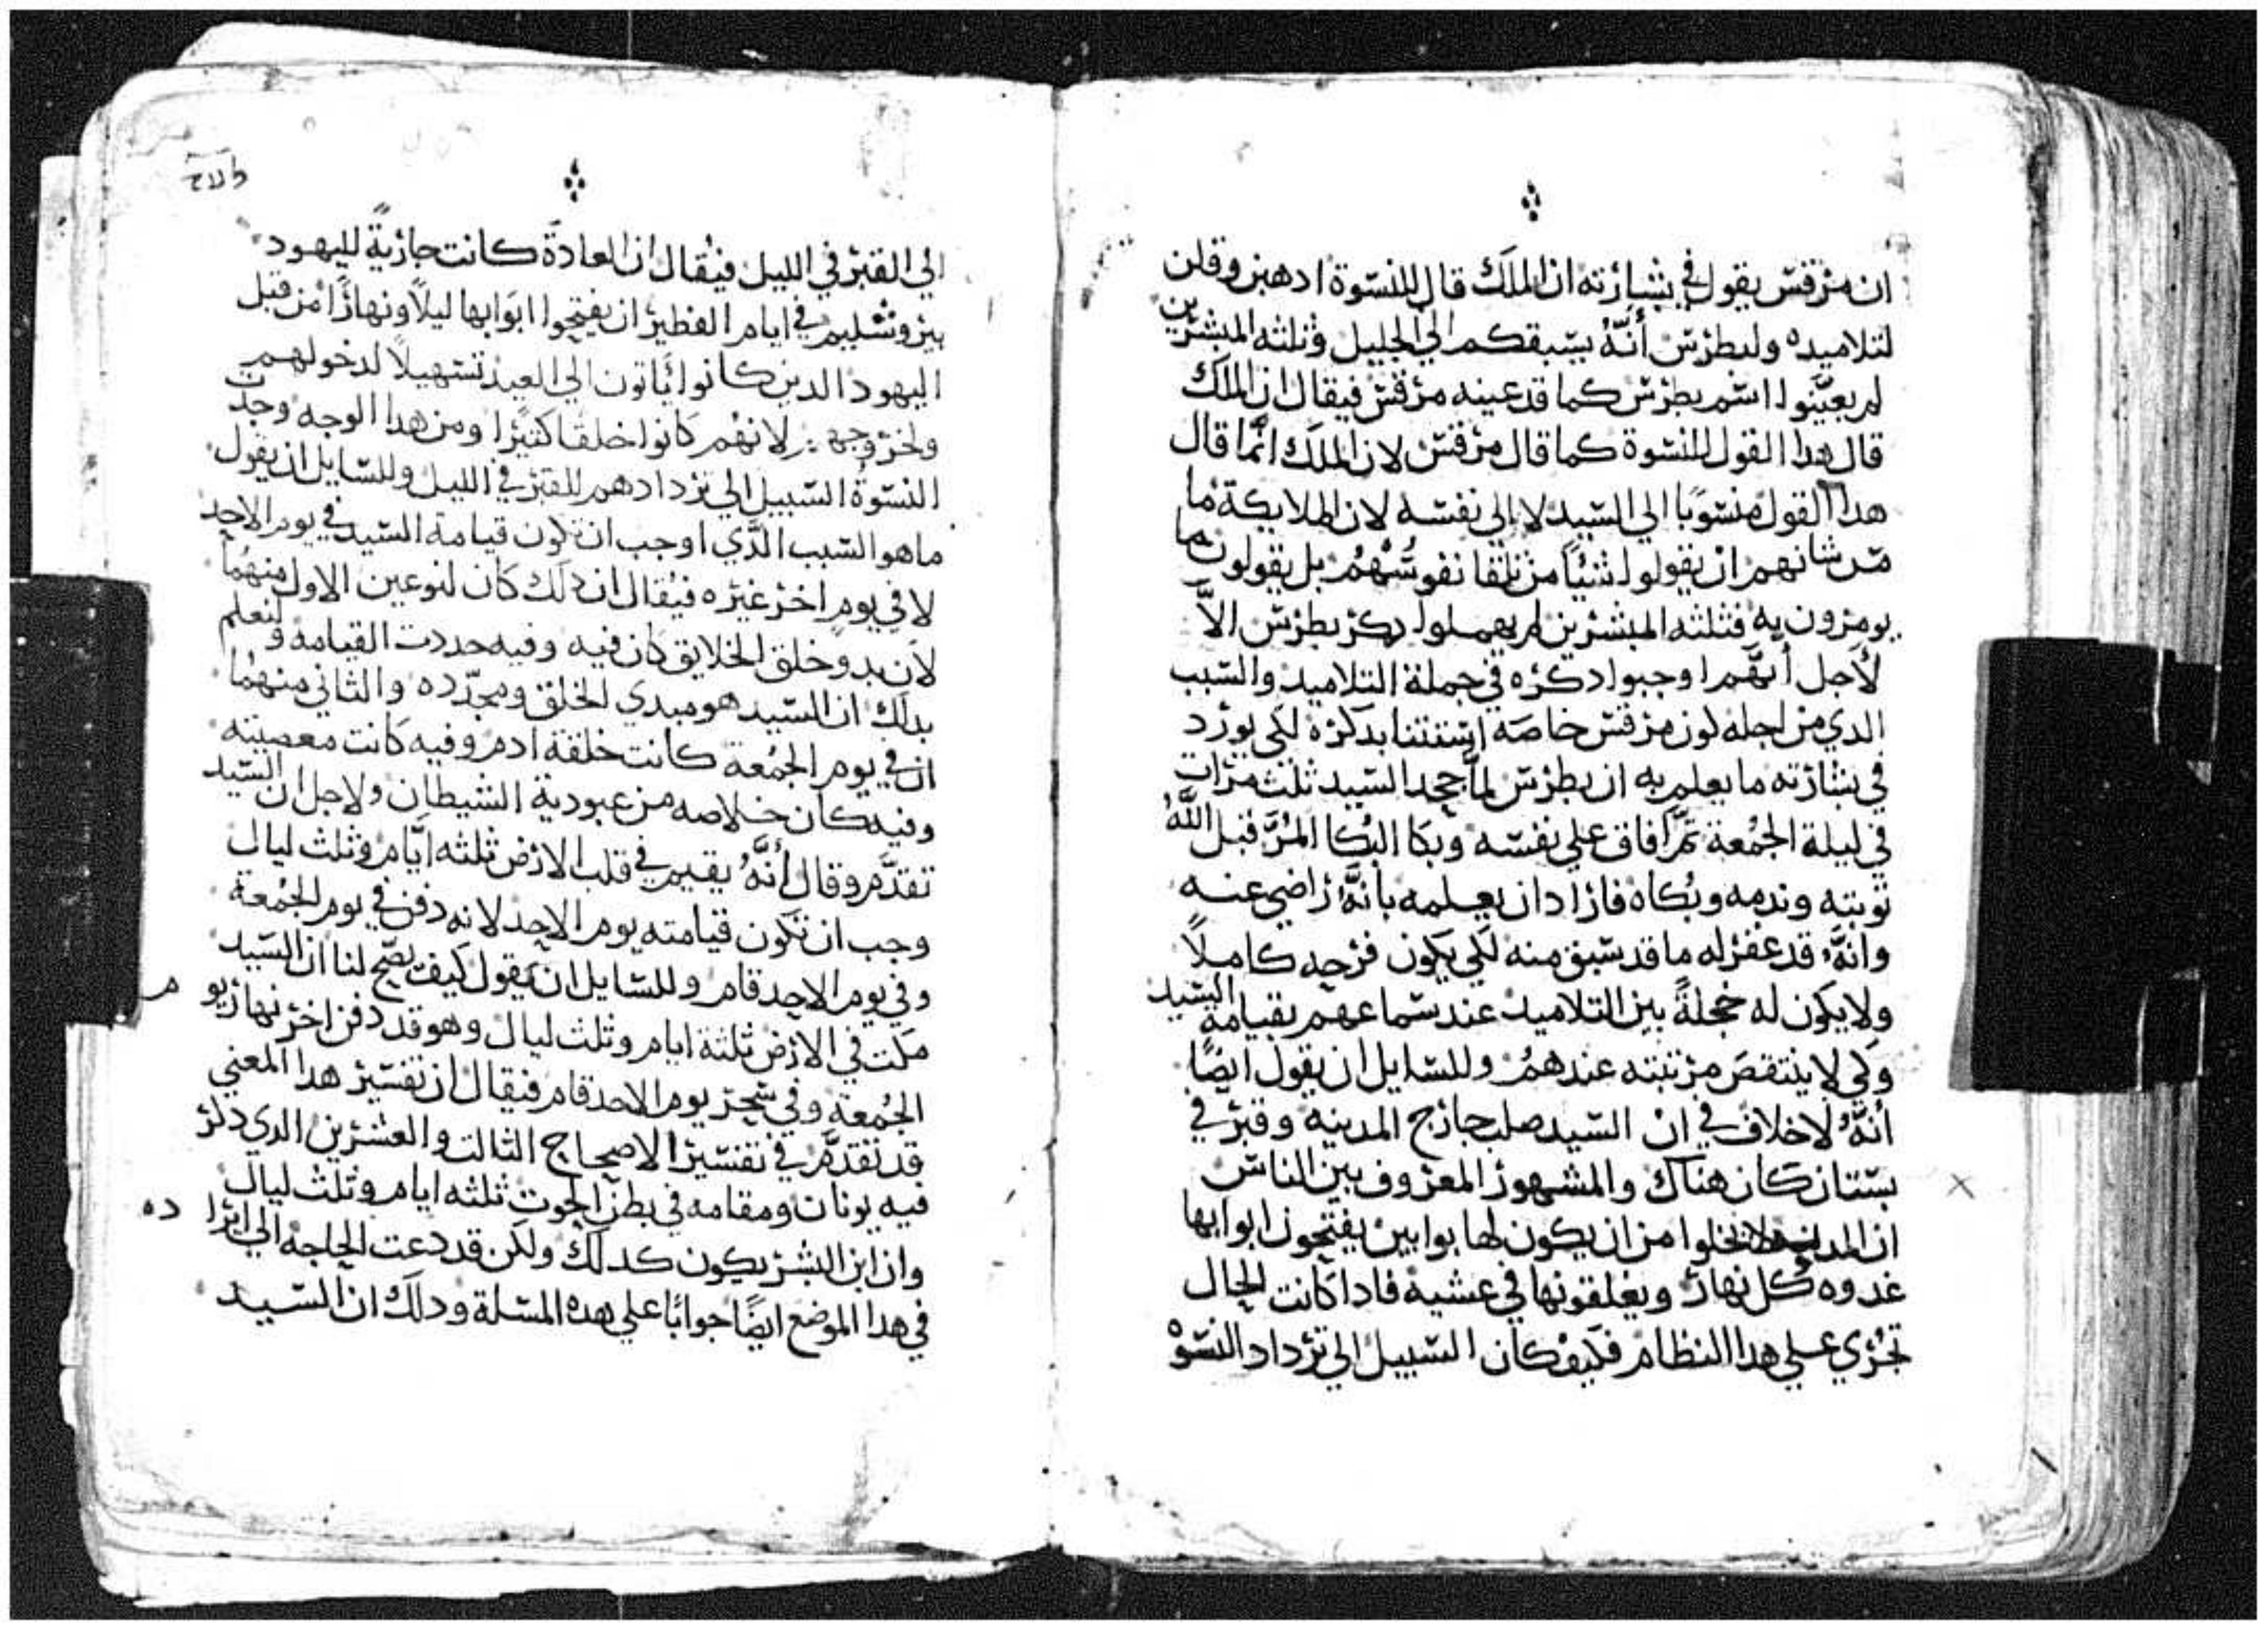 ان مرقس يقول في بشارته ان الملَك قال للنسوة ادهبن وقلن
لتلاميده ولبطرس أنَّهُ يسبقكم الي الجليل وثلثه المبشرين
لم يعيَّنوا اسم بطرس كما قد عينه مرقس فيقال ان الملَك
قال هدا القول للنسوة كما قال مرقس لان الملَك انَّما قال
هدا القول منسوبًا الي السيد لا الي نفسه لان الملايكة ما
من شانهم ان يقولوا شيًا من تلقا نفوسُهُم بل يقولون ما
يومرون به فثلثه المبشرين لم يهملوا دكر بطرس الاَّ
لأجل أنهَّم اوجبوا دكره في جملة التلاميد والسبب
الدي من اجله كون مرقس خاصَه استتنا بدكره لكي يورد
في بشارته ما يعلم به ان بطرس لمَّا جحد السيد ثلث مرات
في ليلة الجمُعة تمَّ افاق علي نفسه وبكا البُكا المُرّ فقبل اللَّهُ
توبته وندمه وبُكاه فارادان يعلمه بانَّهُ راضي عنه
وانَّهُ قد غفر له ما قد سبق منه لكي يكون فرحه كاملاً
ولا يكون له خجلةً بين التلاميد عند سماعهم بقيامة السيد
وكي لا ينتقصَ مرتبته عندهُم وللسايل ان يقول ايضًا
أنَّهُ لاخلاف في ان السيد صلب خارج المدينه وقبر في
بستان كان هناك والمشهور المعروف بين الناس
ان المدينه لاتخلوا من ان يكون لها بوابين يفتحون ابوابها
غدوه كُل نهار ويغلقونها في عشية فادا كانت الحال
تجُري علي هدا النظام فكيف كان السبيل الي ترداد النسوْ
الي القبر في الليل فيُقال ان العادة كانت جاريةً لليهود
بيروشليم في ايام الفطير ان يفتحوا ابوَابها ليلاً ونهارًا من قبل
اليهود الدين كانوا ياتون الي العيد تسهيلاً لدخولهم
ولخروجهم لانهُم كانوا خلقا كثيرًا ومن هدا الوجه وجدت
النسوةُ السبيل الي تردادهم للقبر في الليل وللسايل ان يقول
ماهو السبب الدَّي اوجب ان تكون قيامة السيد في يوم الاحد
لا في يومٍ اخر غيره فيُقال ان دلك كان لنوعين الاول منهُما
لأن بدو خلق الخلايق كان فيه وفيه حددت القيامه ولنعلم
بدلك ان السيد هو مبدي الخلق ومجدّده والثاني منهُما
ان في يوم الجمُعة كانت خلقة ادم وفيه كانت معصيته
وفيه كان خلاصه من عبودية الشيطان ولاجل ان السيد
تقدَّم وقال أنَّهُ يقيم في قلب الارض ثلثه ايَّام وثلث ليال
وجب ان تكون قيامته يوم الاحد لانه دفن في يوم الجمُعة
وفي يوم الاحد قام وللسايل ان يَقول كيف يصّح لنا ان السيد
مكت في الارض ثلثة ايام وثلث ليال وهو قد دفن اخر نهار يو م
الجُمعة وفي سحر يوم الاحد قام فيقال ان تفسير هدا المعني
قد تقدَّم في تفسير الاصحاح الثالت والعشرين الدي دكر
فيه يونان ومقامه في بطن الحوت ثلثه ايام وثلث ليال
وان ابن البشر يكون كدلك ولكن قد دعت الحاجه الي ايرا ده
في هدا الموضع ايضًا جوابًا علي هده المسلة ودلك ان السيد